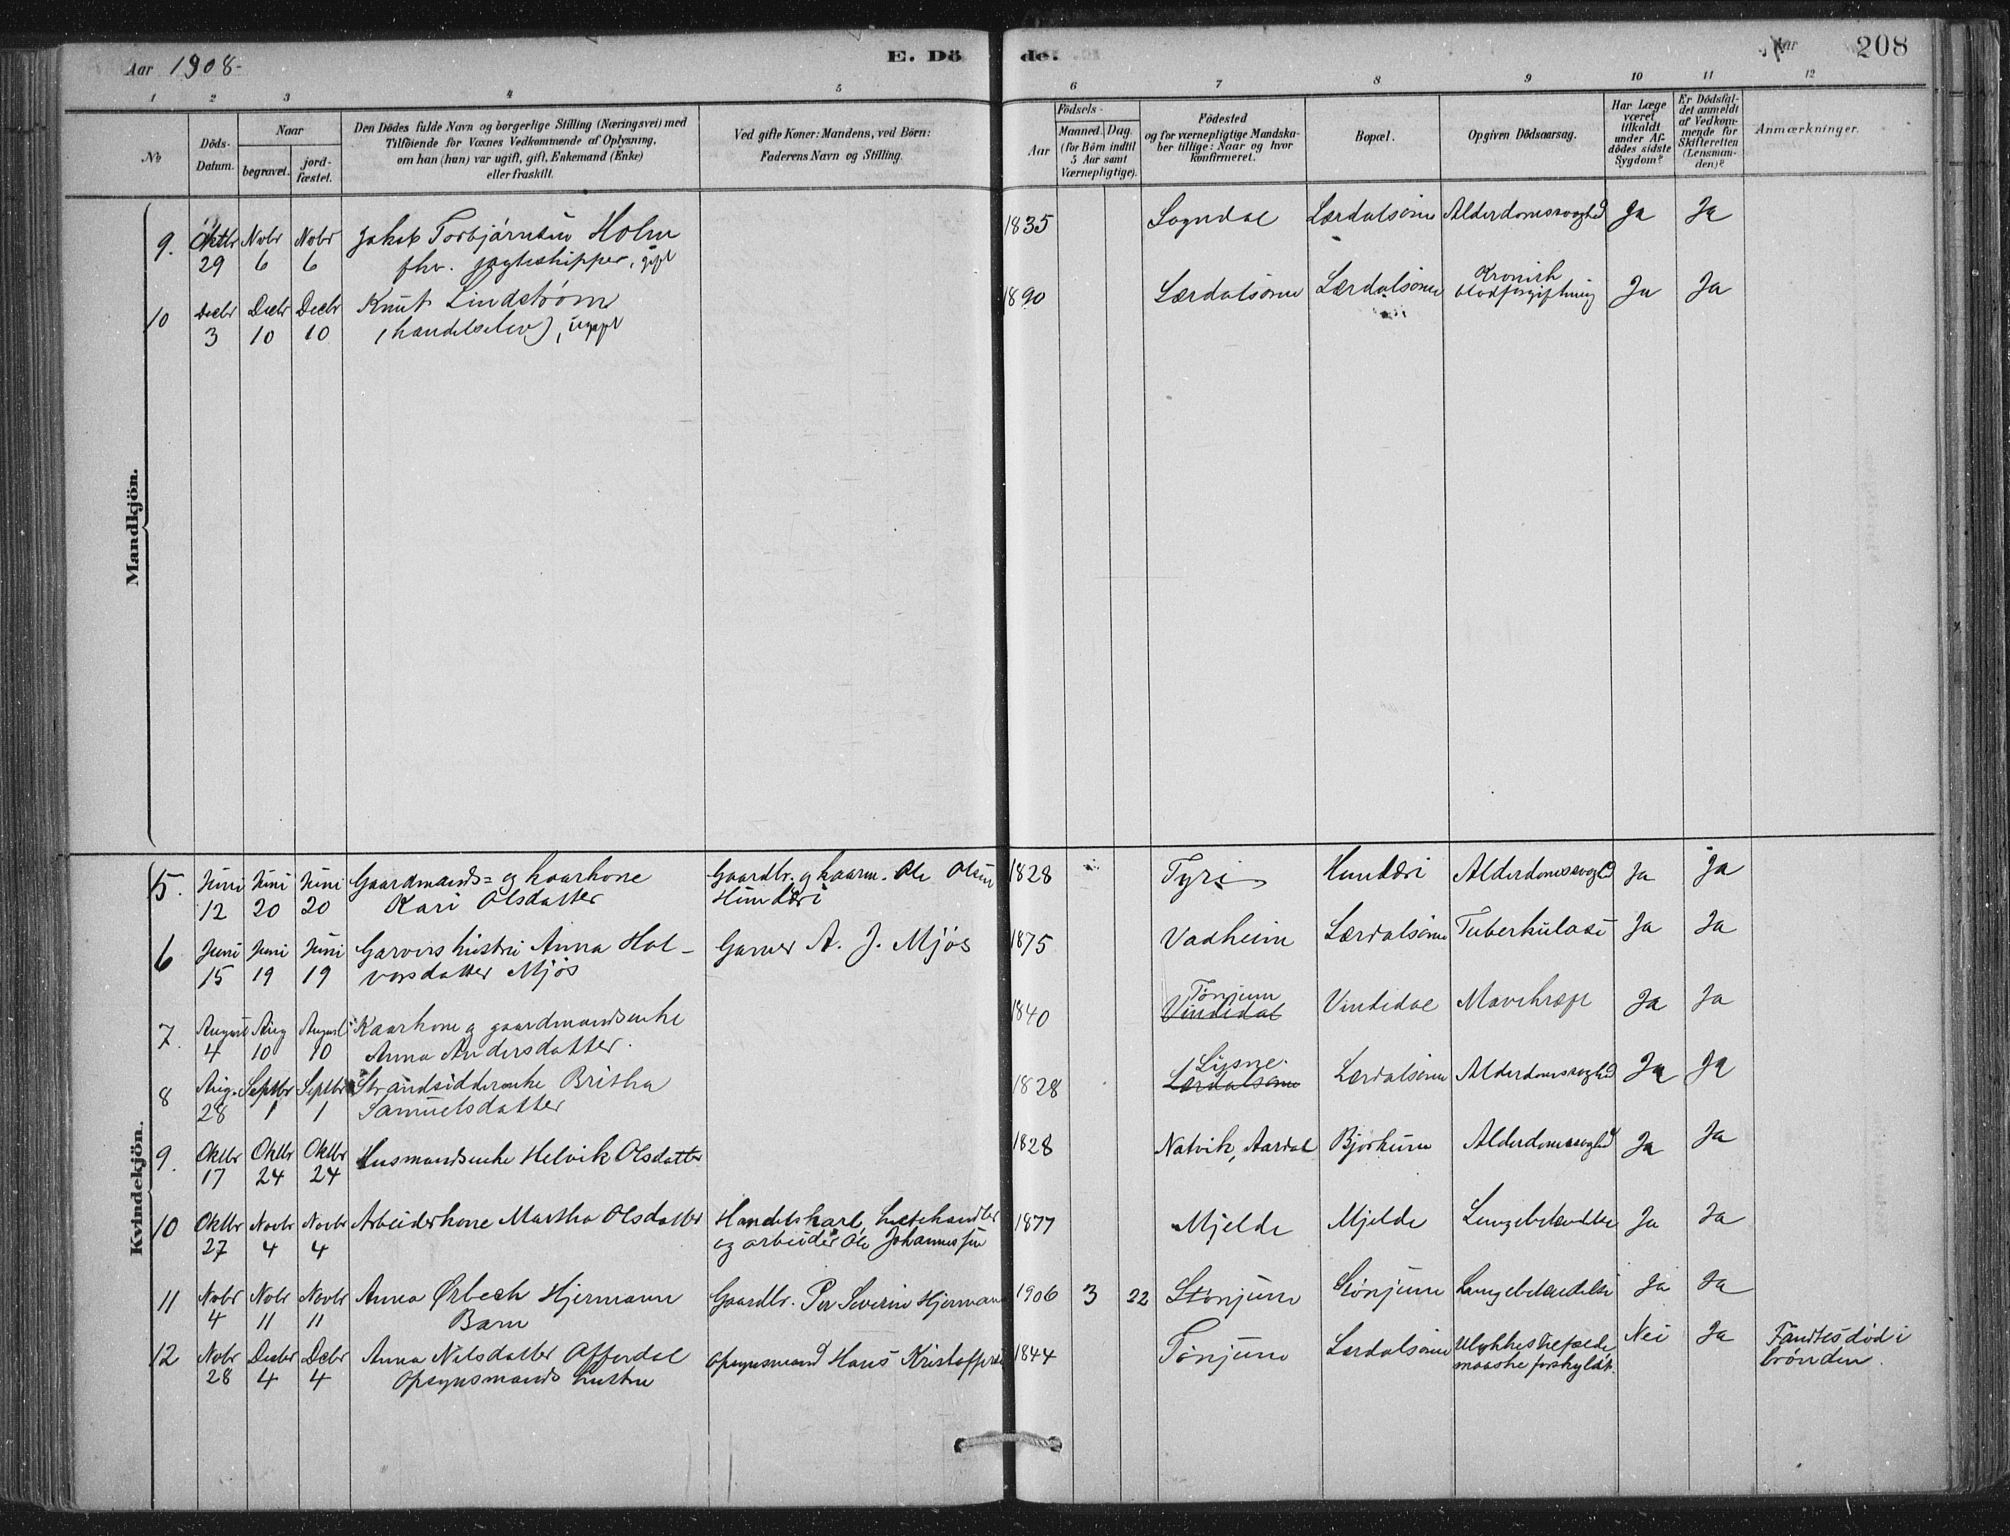 Aar 1908.
E. Dö
de.
Aar
208
1 2 3 4 5 6 7 8 9 10 11 12
No
Döds-Datum.
Naar
begravet.
jord-fæstet.
Den Dödes fulde Navn og borgerlige Stilling (Næringsvei) med
Tilföiende for Voxnes Vedkommende af Oplysning,
om han (hun) var ugift, gift, Enkemand (Enke)
eller fraskilt.
Ved gifte Koner: Mandens, ved Börn:
Faderens Navn og Stilling.
Födsels-
Aar
Maaned. Dag.
(for Börn indtil
5 Aar samt
Værnepligtige).
Födested
og for værnepligtige Mandska-
ber tillige: Naar og hvor
konfirmeret.
Bopæl.
Opgiven Dödsaarsag.
Har Læge
været
tilkaldt
under Af-
dödes sidste
Sygdom?
Er Dödsfal-
det anmeldt
af Vedkom-
mende for
Skifteretten
(Lensman-
den)?
Anmærkninger.
Mandkjön.
9. Oktbr 29 Novbr 6 Novbr 6 Jakob Torbjørnsen Holm
fhv. jagteskipper, gift
1835 Sogndal Lærdalsøren Alderdomssvaghed Ja Ja
10 Decbr 3 Decbr 10 Decbr 10 Knut Lindstrøm
(handelselev), ugift
1890 Lærdalsøren Lærdalsøren Kronisk
blodforgiftning Ja Ja
Kvindekjön.
5. Juni 12 Juni 20 Juni 20 Gaardmands= og kaarkone
Kari Olsdatter
Gaardbr. og kaarm. Ole Olsen
Hunderi
1828 Tyri Hunderi Alderdomssvaghed Ja Ja
6 Juni 15 Juni 19 Juni 19 Garvers hustru Anna Hal-
vorsdatter Mjös
Garver A. J. Mjös
1875 Vadheim Lærdalsøren Tuberkulose Ja Ja
7. August 4 Aug 10 August 10 Kaarkone og gaardmandsenke
Anna Andersdatter.
1840 Tønjum
Vindedal Vindedal Mavekræft Ja Ja
8 Aug. 28 Septbr 1 Septbr 1 Strandsidderenke Britha
Samuelsdatter
1828 Lysne.
Lærdalsøren Lærdalsøren Alderdomssvaghed Ja Ja
9. Oktbr 17 Oktbr 24 Oktbr 24 Husmandsenke Helvik Olsdatter
1828 Natvik, Aardal Bjørkum Alderdomssvaghed Ja Ja
10 Oktbr 27 Novbr 4 Novbr 4 Arbeiderkone Martha Olsdatter
Handelskarl, hestehandler
og arbeider Ole Johannessen
1877 Mjelde Mjelde Lungebetændelse Ja Ja
11 Novbr 4 Novbr 11 Novbr 11 Anna Ørbech Hjermann
Barn
Gaardbr. Per Severin Hjermann
1906 3 22 Stønjum Stønjum Lungebetændelse Ja Ja
12 Novbr 28 Decbr 4 Decbr 4 Anna Nilsdatter Offerdal
Opsynsmands hustru
Opsynsmand Hans Kristoffersen
1844 Tønjum Lærdalsøren Ulykkestilfælde,
maaske forskyldt. Nei Ja Fandtes død i
brønden.